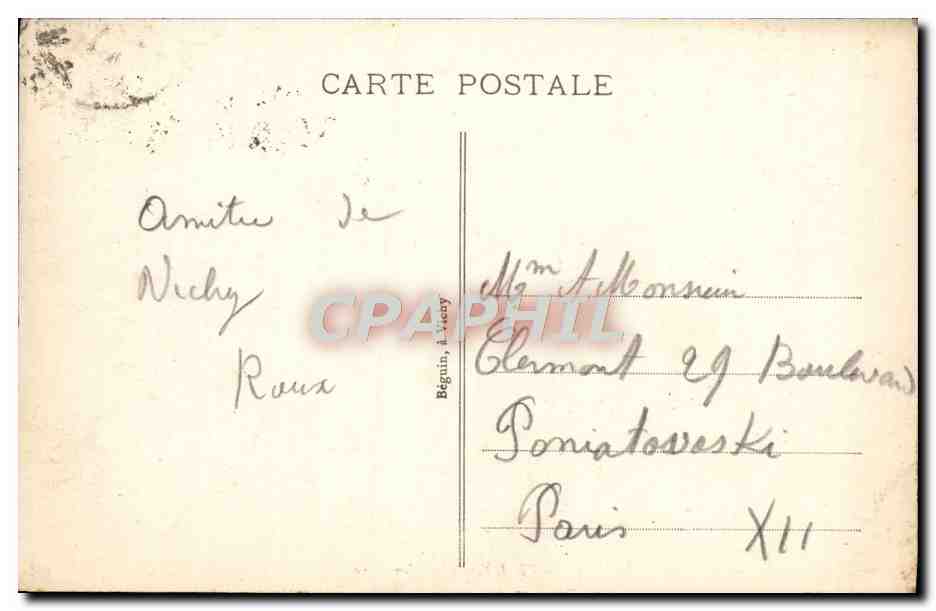 CARTE POSTALE
Amitie de
Vichy
Roux
Béguin, à Vichy
CPAPHIL
Mm A Monsieur
Clermont 29 Boulevard
Poniatovoski
Paris XII